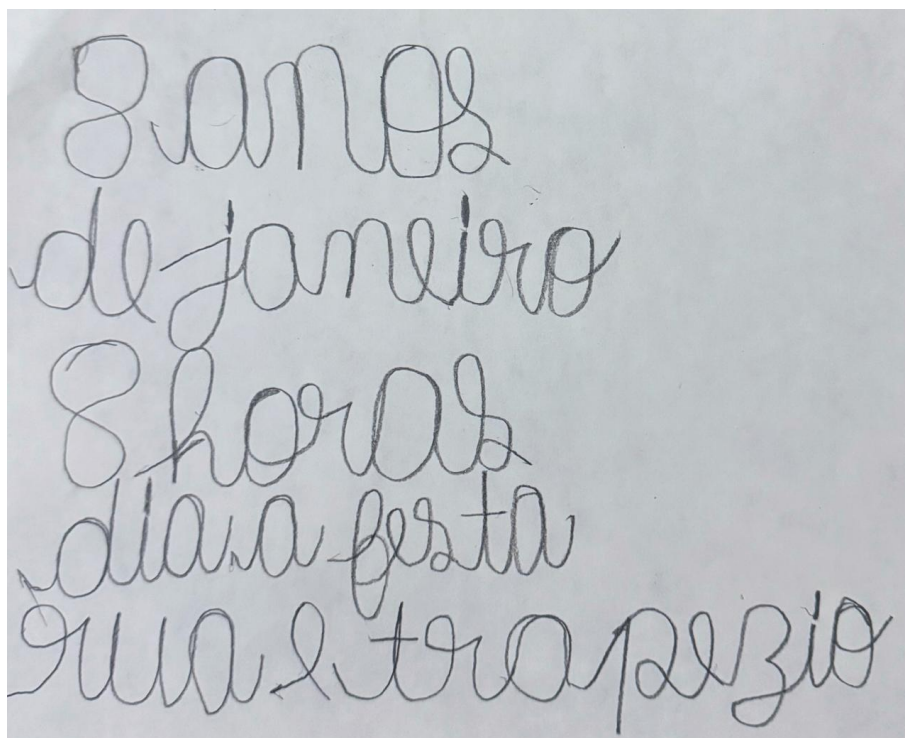 8 anos
de janeiro
8 horas
dia a festa
rua e trapezio